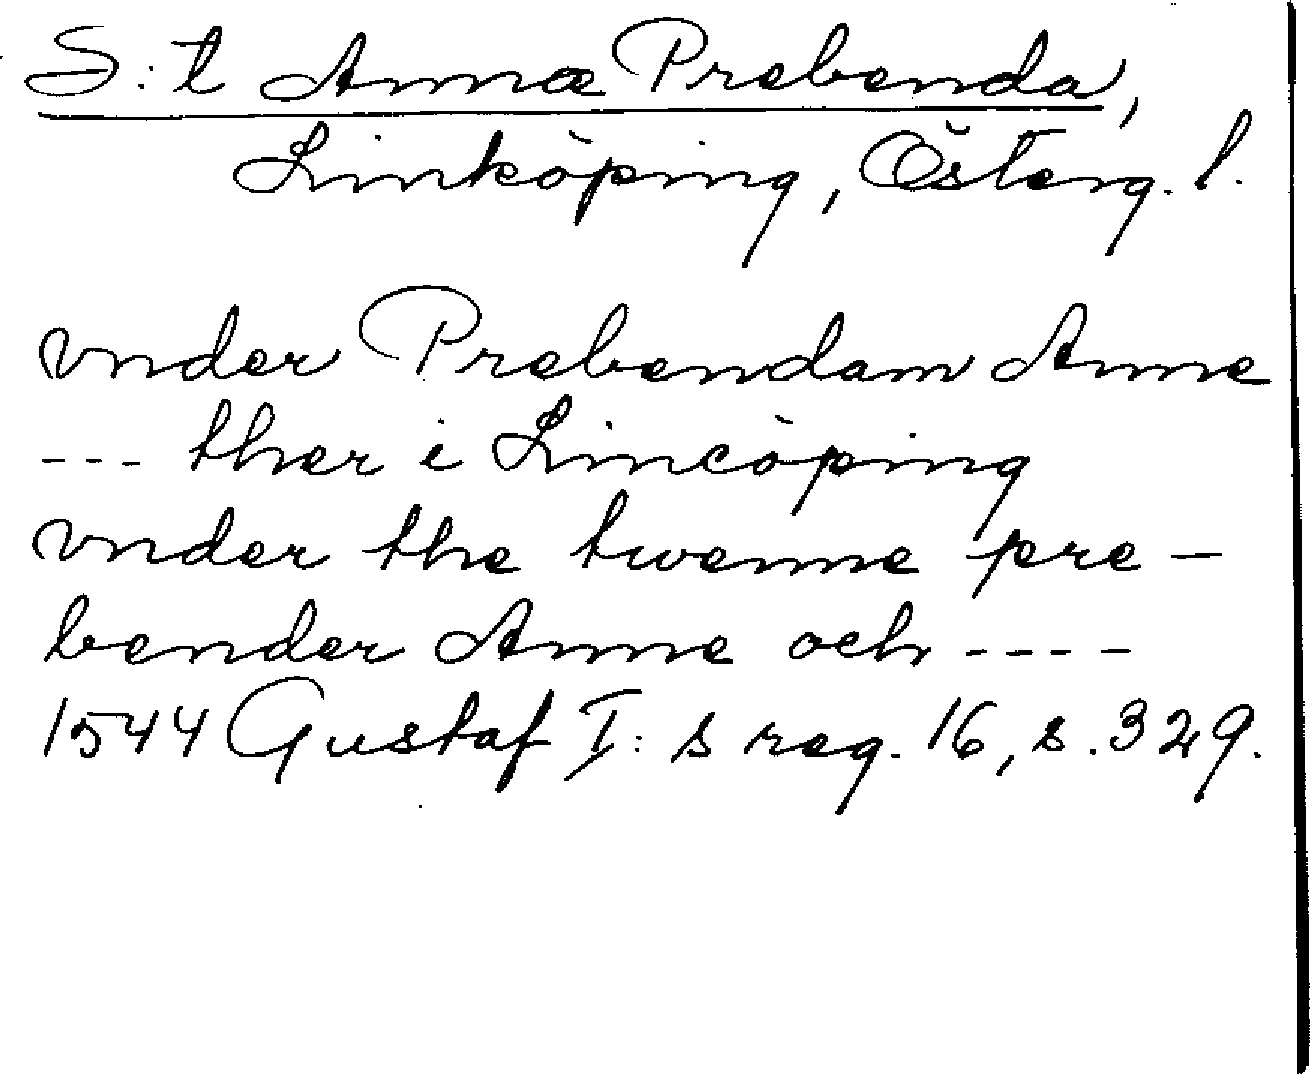 S:t Annæ Prebenda,
Linköping, Österg. l.
vnder Prebendam Anne
--- ther i Lincöping
vnder the twenne pre-
bender Anne och ----
1544 Gustaf I:s reg. 16, s. 329.